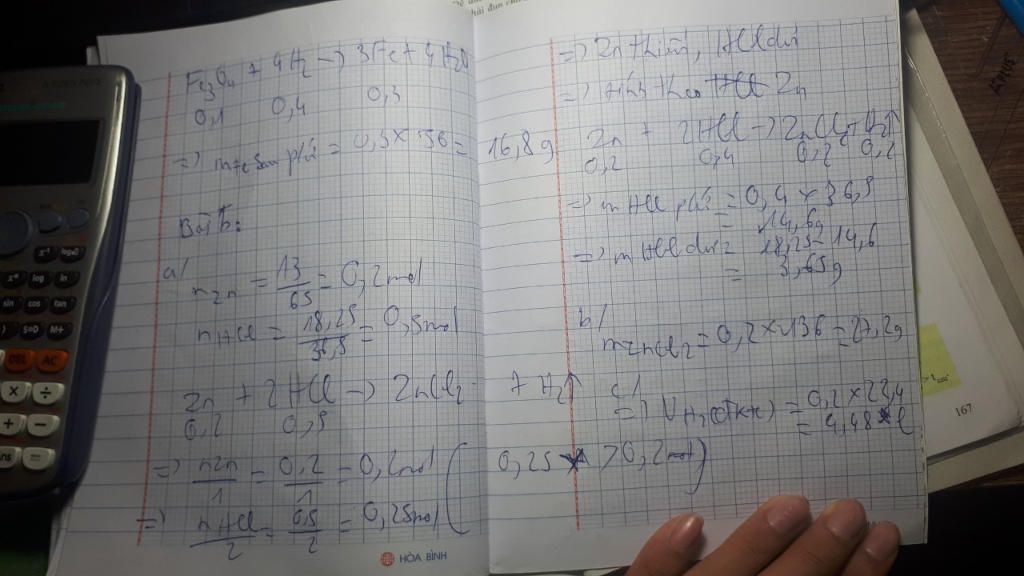 Fe3O4 + 4H2 -> 3Fe + 4H2O
0,1 0,4 0,3
=> mFe sau p/ứ = 0,3 x 56 = 16,8g
Bài 5:
a/ nZn = 13/65 = 0,2 mol
nHCl = 18,25/36,5 = 0,5 mol
Zn + 2HCl -> ZnCl2 + H2↑
0,2 0,5
=> nZn/1 = 0,2/1 = 0,2 mol ( 0,25 > 0,2 mol)
=> nHCl/2 = 0,5/2 = 0,25 mol
HÒA BÌNH
=> Zn thiếu, HCl dư
=> tính theo HCl Zn
Zn + 2HCl -> ZnCl2 + H2↑
0,2 0,4 0,2 0,2
=> mHCl p/ứ = 0,4 x 36,5
= 14,6g
=> mHCl dư = 18,25 - 14,6
= 3,65g
b/
mZnCl2 = 0,2 x 136 = 27,2g
c/
=> VH2(đktc) = 0,2 x 22,4
= 4,48 l
167
x⁻¹
log
ln
sin cos tan
S⇔D M+
DEL AC
× ÷
+ −